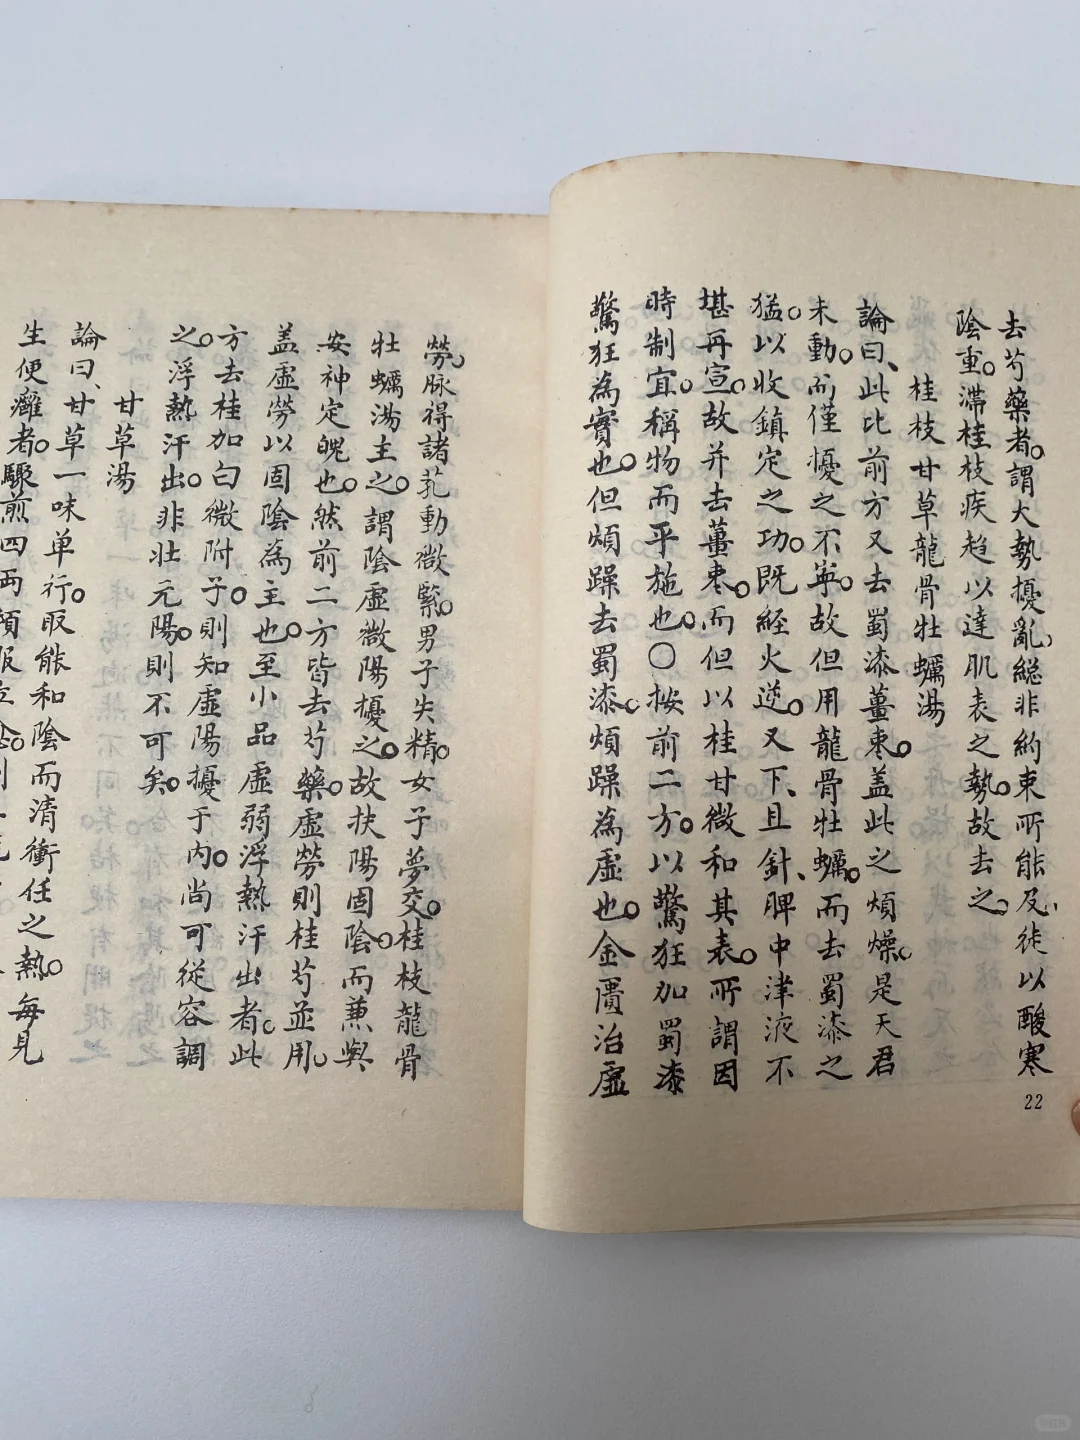 去芍藥者。謂大勢擾亂、総非約束所能及、徒以酸寒
陰重。滞桂枝疾趋以達肌表之勢。故去之。
桂枝甘草龍骨牡蠣湯
論曰、此比前方又去蜀漆薑棗。盖此之煩燥。是天君
未動。而僅擾之不寧。故但用龍骨牡蠣。而去蜀漆之
猛。以收鎮定之功。既経火逆。又下、且針、脾中津液不
堪再宣。故并去薑棗。而但以桂甘微和其表。所謂因
時制宜。稱物而平施也。〇按前二方。以驚狂加蜀漆
驚狂為實也。但煩躁去蜀漆。煩躁為虛也。金匱治虛
22
勞。脉得諸芤動微緊。男子失精。女子夢交。桂枝龍骨
牡蠣湯主之。謂陰虛微陽擾之。故扶陽固陰。而兼與
安神定魄也。然前二方皆去芍藥。虛勞則桂芍並用。
盖虛勞以固陰為主也。至小品虛弱浮熱汗出者。此
方去桂加白微附子。則知虛陽擾于内。尚可從容調
之。浮熱汗出。非壮元陽。則不可矣。
甘草湯
論曰、甘草一味单行。最能和陰而清衝任之熱。每見
生便癰者。驟煎四両頓服立